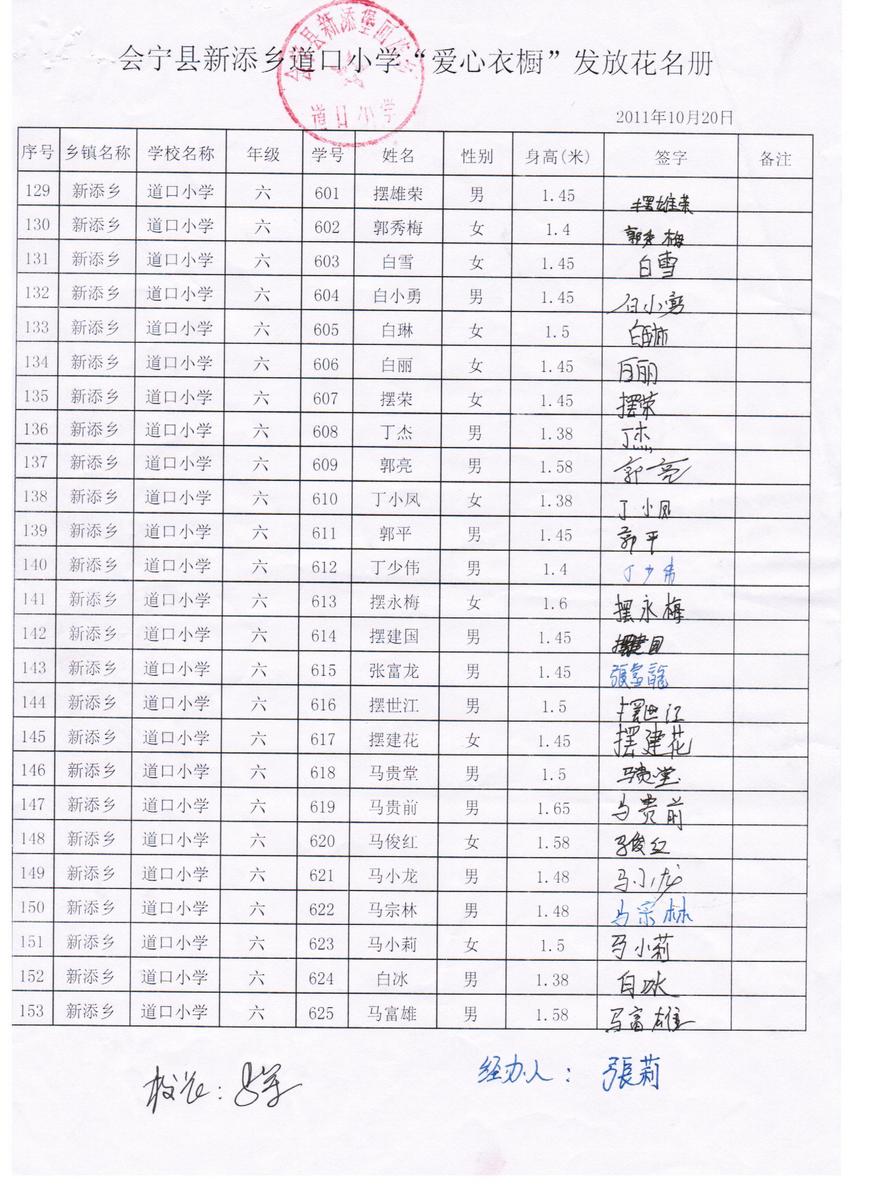 会宁县新添乡道口小学“爱心衣橱”发放花名册
道口小学
2011年10月20日
序号 乡镇名称 学校名称 年级 学号 姓名 性别 身高(米) 签字 备注
129 新添乡 道口小学 六 601 摆雄荣 男 1.45 摆雄荣
130 新添乡 道口小学 六 602 郭秀梅 女 1.4 郭秀梅
131 新添乡 道口小学 六 603 白雪 女 1.45 白雪
132 新添乡 道口小学 六 604 白小勇 男 1.45 白小勇
133 新添乡 道口小学 六 605 白琳 女 1.5 白琳
134 新添乡 道口小学 六 606 白丽 女 1.45 白丽
135 新添乡 道口小学 六 607 摆荣 女 1.45 摆荣
136 新添乡 道口小学 六 608 丁杰 男 1.38 丁杰
137 新添乡 道口小学 六 609 郭亮 男 1.58 郭亮
138 新添乡 道口小学 六 610 丁小凤 女 1.38 丁小凤
139 新添乡 道口小学 六 611 郭平 男 1.45 郭平
140 新添乡 道口小学 六 612 丁少伟 男 1.4 丁少伟
141 新添乡 道口小学 六 613 摆永梅 女 1.6 摆永梅
142 新添乡 道口小学 六 614 摆建国 男 1.45 摆建国
143 新添乡 道口小学 六 615 张富龙 男 1.45 張富龍
144 新添乡 道口小学 六 616 摆世江 男 1.5 摆世江
145 新添乡 道口小学 六 617 摆建花 女 1.45 摆建花
146 新添乡 道口小学 六 618 马贵堂 男 1.5 马贵堂
147 新添乡 道口小学 六 619 马贵前 男 1.65 马贵前
148 新添乡 道口小学 六 620 马俊红 女 1.58 马俊红
149 新添乡 道口小学 六 621 马小龙 男 1.48 马小龙
150 新添乡 道口小学 六 622 马宗林 男 1.48 马宗林
151 新添乡 道口小学 六 623 马小莉 女 1.5 马小莉
152 新添乡 道口小学 六 624 白冰 男 1.38 白冰
153 新添乡 道口小学 六 625 马富雄 男 1.58 马富雄
校长：
经办人： 張莉